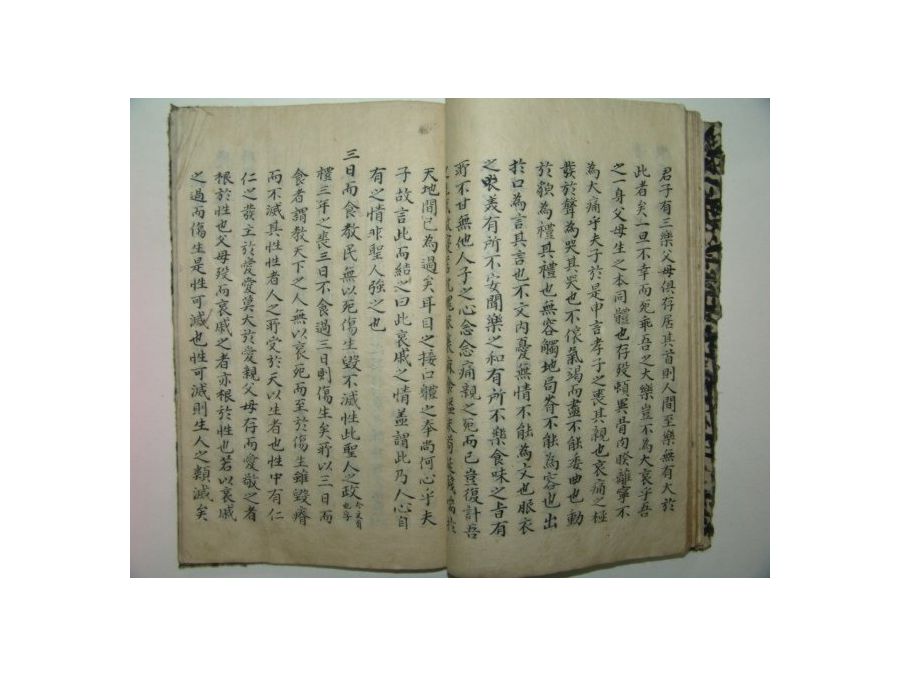 君子有三樂父母俱存居其首則人間至樂無有大於
此者矣一旦不幸而死乖吾之大樂豈不為大哀乎吾
之一身父母生之本同體也存歿頓異骨肉睽離寧不
為大痛乎夫子於是申言孝子之喪其親也哀痛之極
發於聲為哭其哭也不偯氣竭而盡不能委曲也動
於貌為禮其禮也無容觸地局脊不能為容也出
於口為言其言也不文內憂無情不能為文也服衣
之美有所不安聞樂之和有所不樂食味之旨有
所不甘無他人子之心念念痛親之死而已豈復計吾
天地間已為過矣耳目之接口體之奉尚何心乎夫
子故言此而結之曰此哀戚之情盖謂此乃人心自
有之情非聖人強之也
三日而食教民無以死傷生毀不滅性此聖人之政
禮三年之喪三日不食過三日則傷生矣所以三日而
食者謂教天下之人無以哀死而至於傷生雖毀瘠
而不滅其性性者人之所受於天以生者也性中有仁
仁之發主於愛愛莫大於愛親父母存而愛敬之者
根於性也父母歿而哀戚之者亦根於性也若以哀戚
之過而傷生是性可滅也性可滅則生人之類滅矣